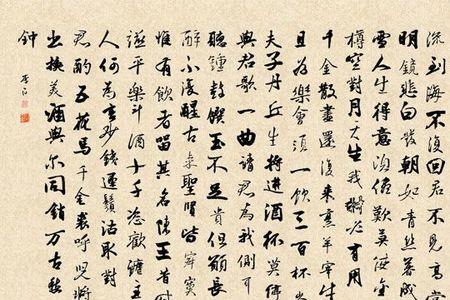 流到海不復回君不見高堂
明鏡悲白髮朝如青絲暮成
雪人生得意須盡歡莫使金
樽空對月天生我材必有用
千金散盡還復來烹羊宰牛
且為樂會須一飲三百杯岑
夫子丹丘生將進酒杯莫停
與君歌一曲請君為我側耳
聽鍾鼓饌玉不足貴但願長
醉不復醒古來聖賢皆寂寞
惟有飲者留其名陳王昔時
平樂斗酒十千恣歡謔主
人何為言少錢逕須沽取對
君酌五花馬千金裘呼兒將
出換美酒與爾同銷萬古愁
鍾